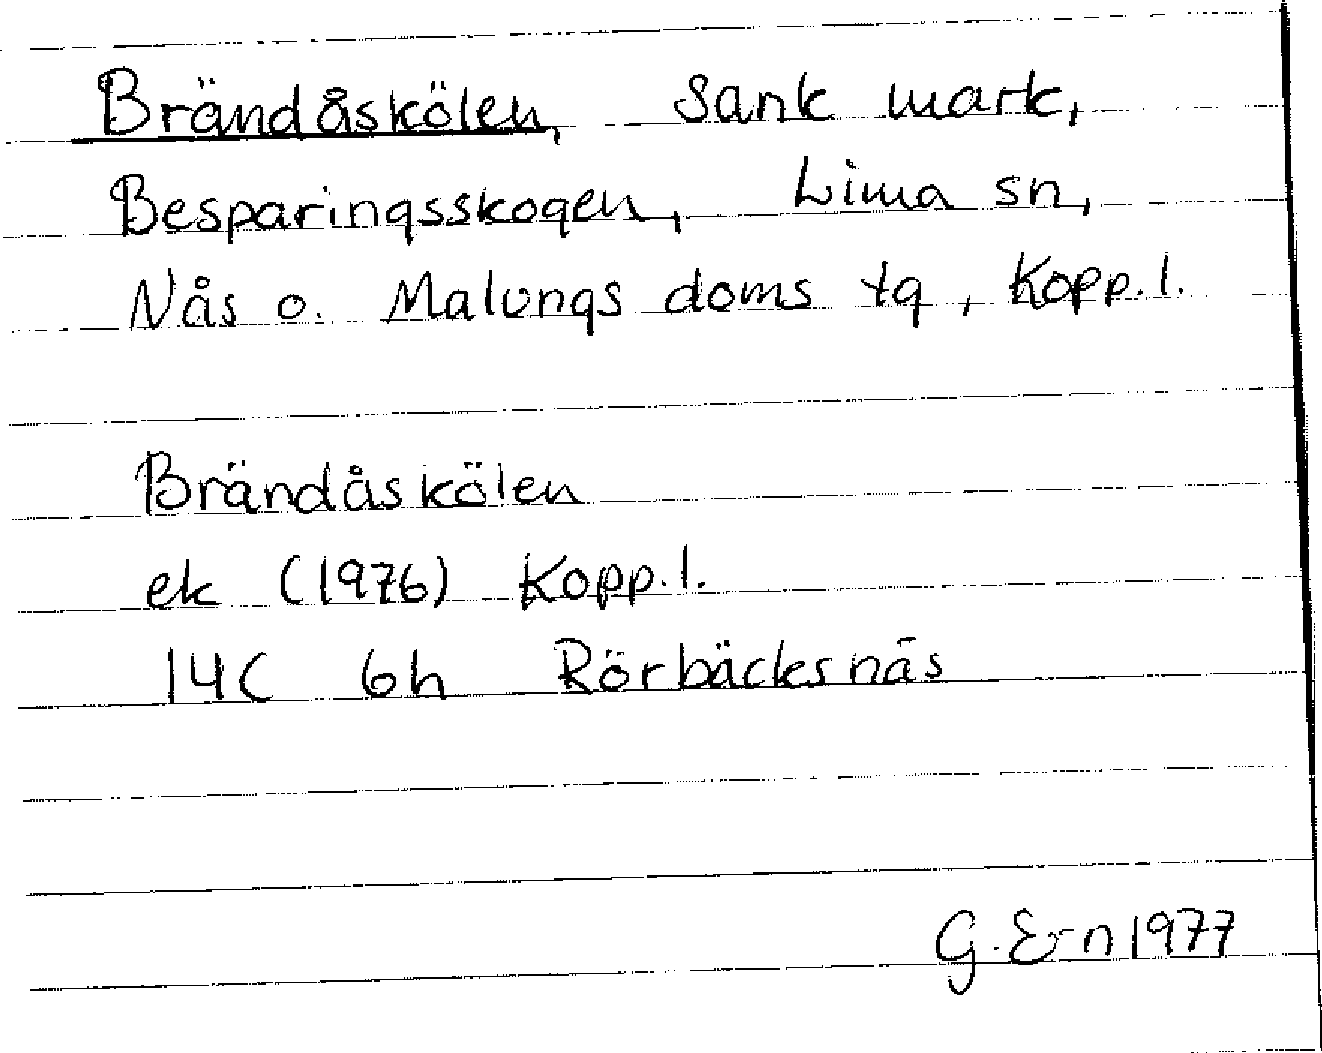 Brändåskölen, Sank mark,
Besparingsskogen, Lima sn,
Nås o. Malungs doms tg, Kopp.l.
Brändåskölen
ek (1976) Kopp.l.
14C 6h Rörbäcksnäs
G. Ern 1977